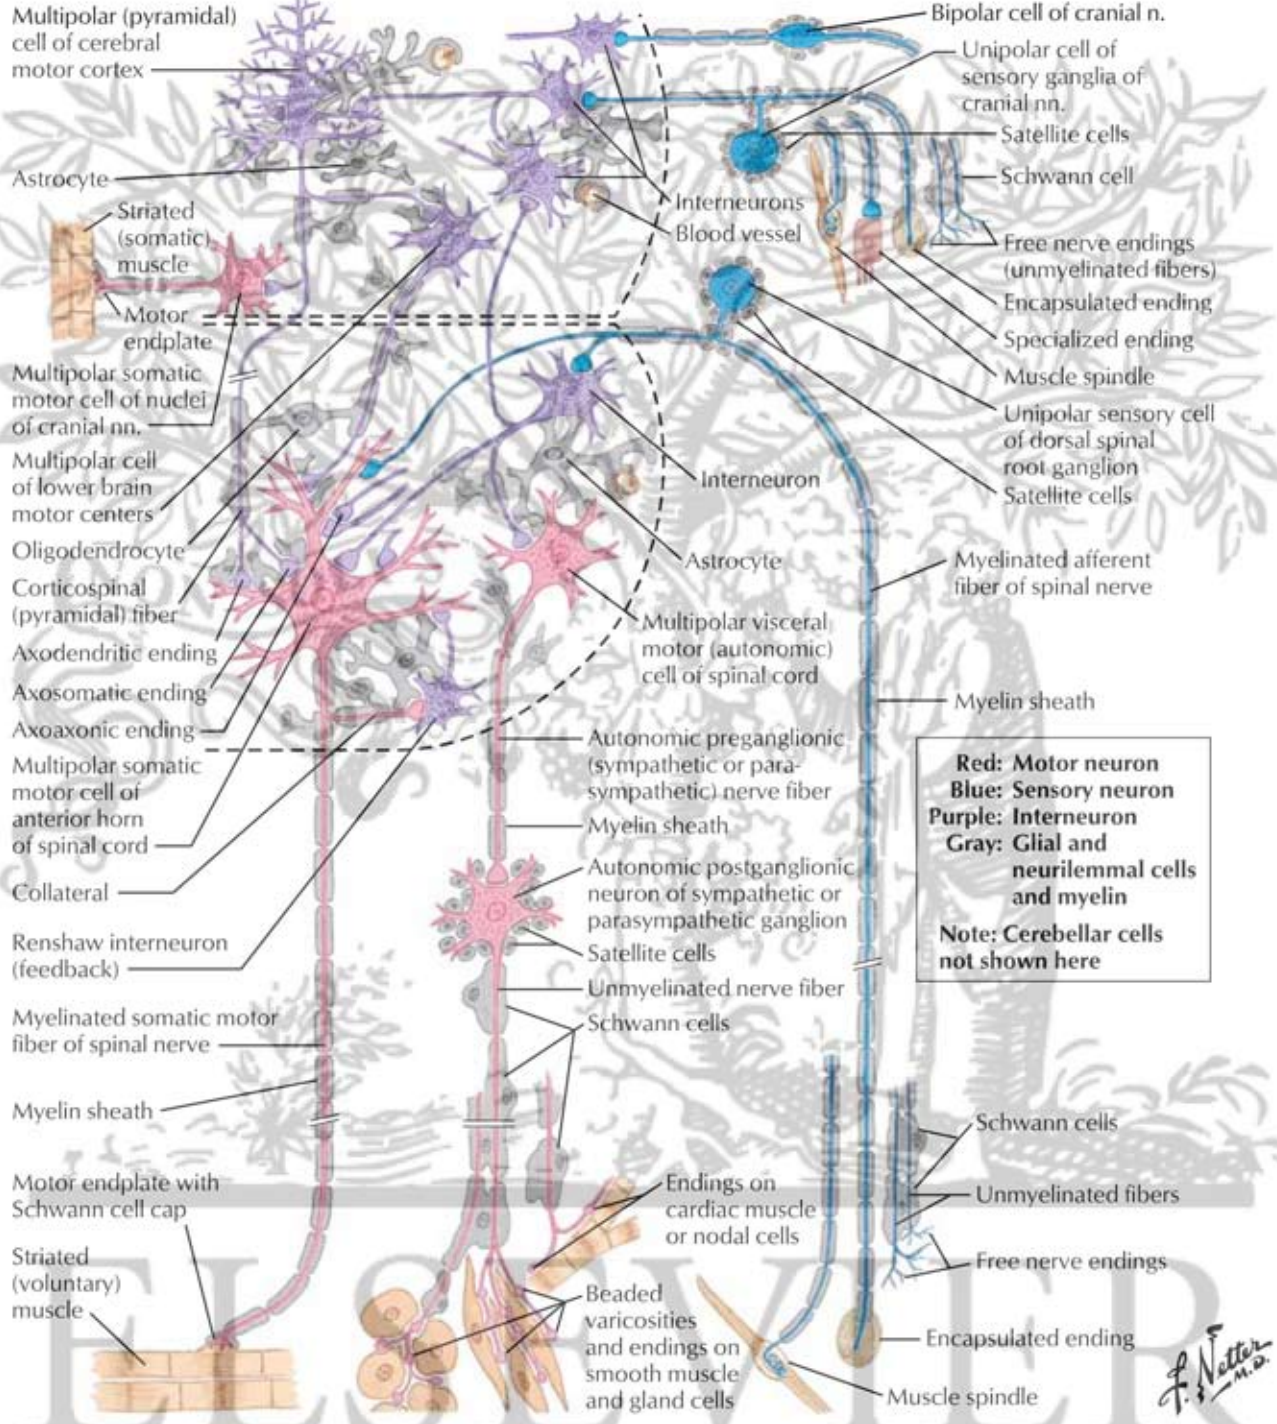 Multipolar (pyramidal)
cell of cerebral
motor cortex
Astrocyte
Striated
(somatic)
muscle
Motor
endplate
Multipolar somatic
motor cell of nuclei
of cranial nn.
Multipolar cell
of lower brain
motor centers
Oligodendrocyte
Corticospinal
(pyramidal) fiber
Axodendritic ending
Axosomatic ending
Axoaxonic ending
Multipolar somatic
motor cell of
anterior horn
of spinal cord
Collateral
Renshaw interneuron
(feedback)
Myelinated somatic motor
fiber of spinal nerve
Myelin sheath
Motor endplate with
Schwann cell cap
Striated
(voluntary)
muscle
Interneurons
Blood vessel
Interneuron
Astrocyte
Multipolar visceral
motor (autonomic)
cell of spinal cord
Autonomic preganglionic
(sympathetic or para-
sympathetic) nerve fiber
Myelin sheath
Autonomic postganglionic
neuron of sympathetic or
parasympathetic ganglion
Satellite cells
Unmyelinated nerve fiber
Schwann cells
Endings on
cardiac muscle
or nodal cells
Beaded
varicosities
and endings on
smooth muscle
and gland cells
Bipolar cell of cranial n.
Unipolar cell of
sensory ganglia of
cranial nn.
Satellite cells
Schwann cell
Free nerve endings
(unmyelinated fibers)
Encapsulated ending
Specialized ending
Muscle spindle
Unipolar sensory cell
of dorsal spinal
root ganglion
Satellite cells
Myelinated afferent
fiber of spinal nerve
Myelin sheath
Red: Motor neuron
Blue: Sensory neuron
Purple: Interneuron
Gray: Glial and
neurilemmal cells
and myelin
Note: Cerebellar cells
not shown here
Schwann cells
Unmyelinated fibers
Free nerve endings
Encapsulated ending
Muscle spindle
ELSEVIER
F. Netter
M.D.